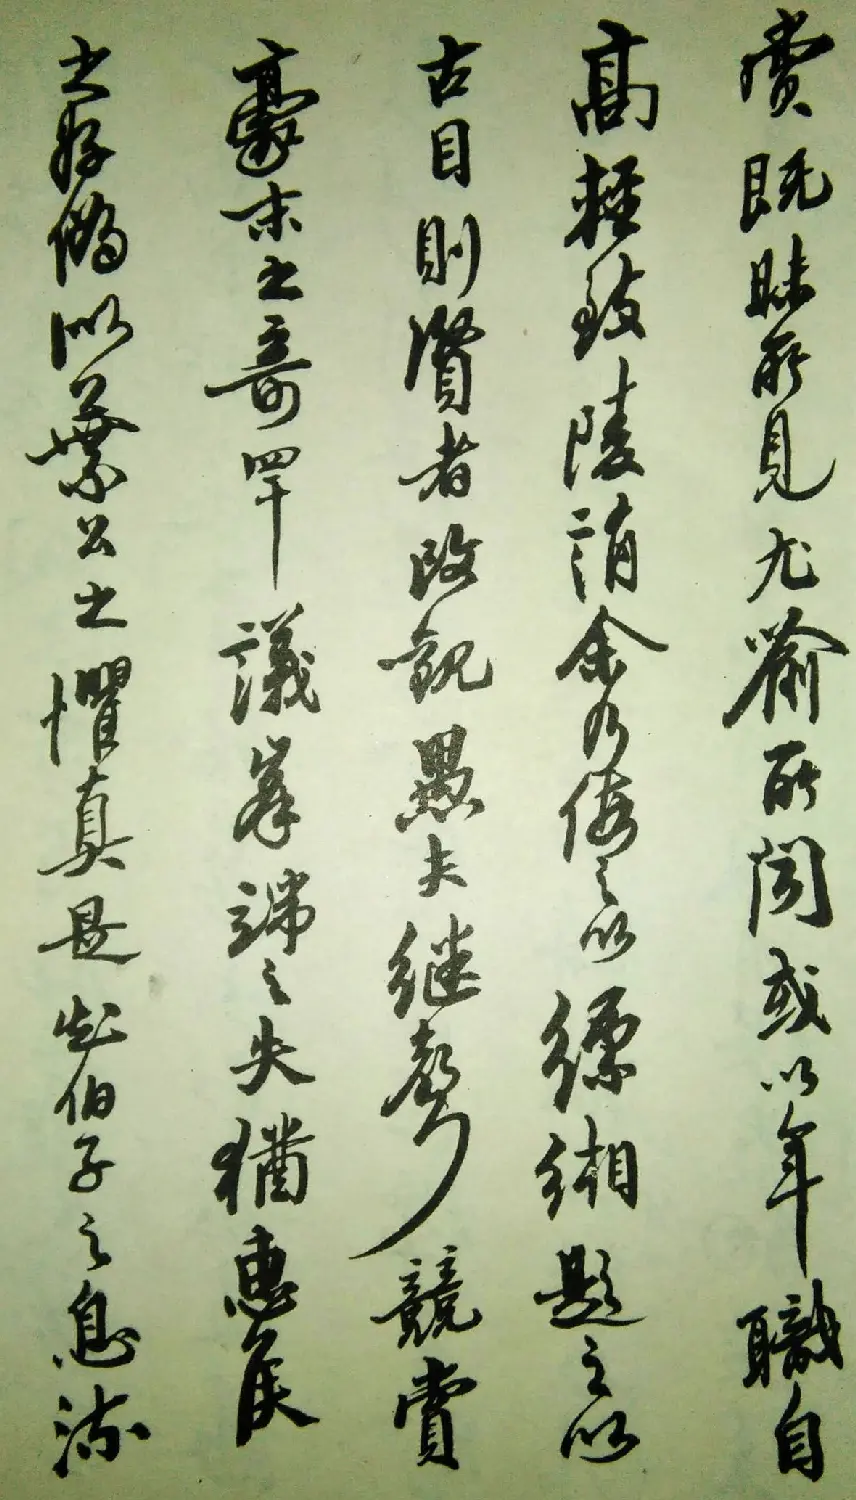 賞既昧所見尤喻所聞或以年職自
高輕致陵誚余乃假之以縹緗題之以
古目則賢者改觀愚夫继聲競賞
豪末之奇罕議峯端之失猶惠侯
之好偽似葉公之懼真是知伯子之息流